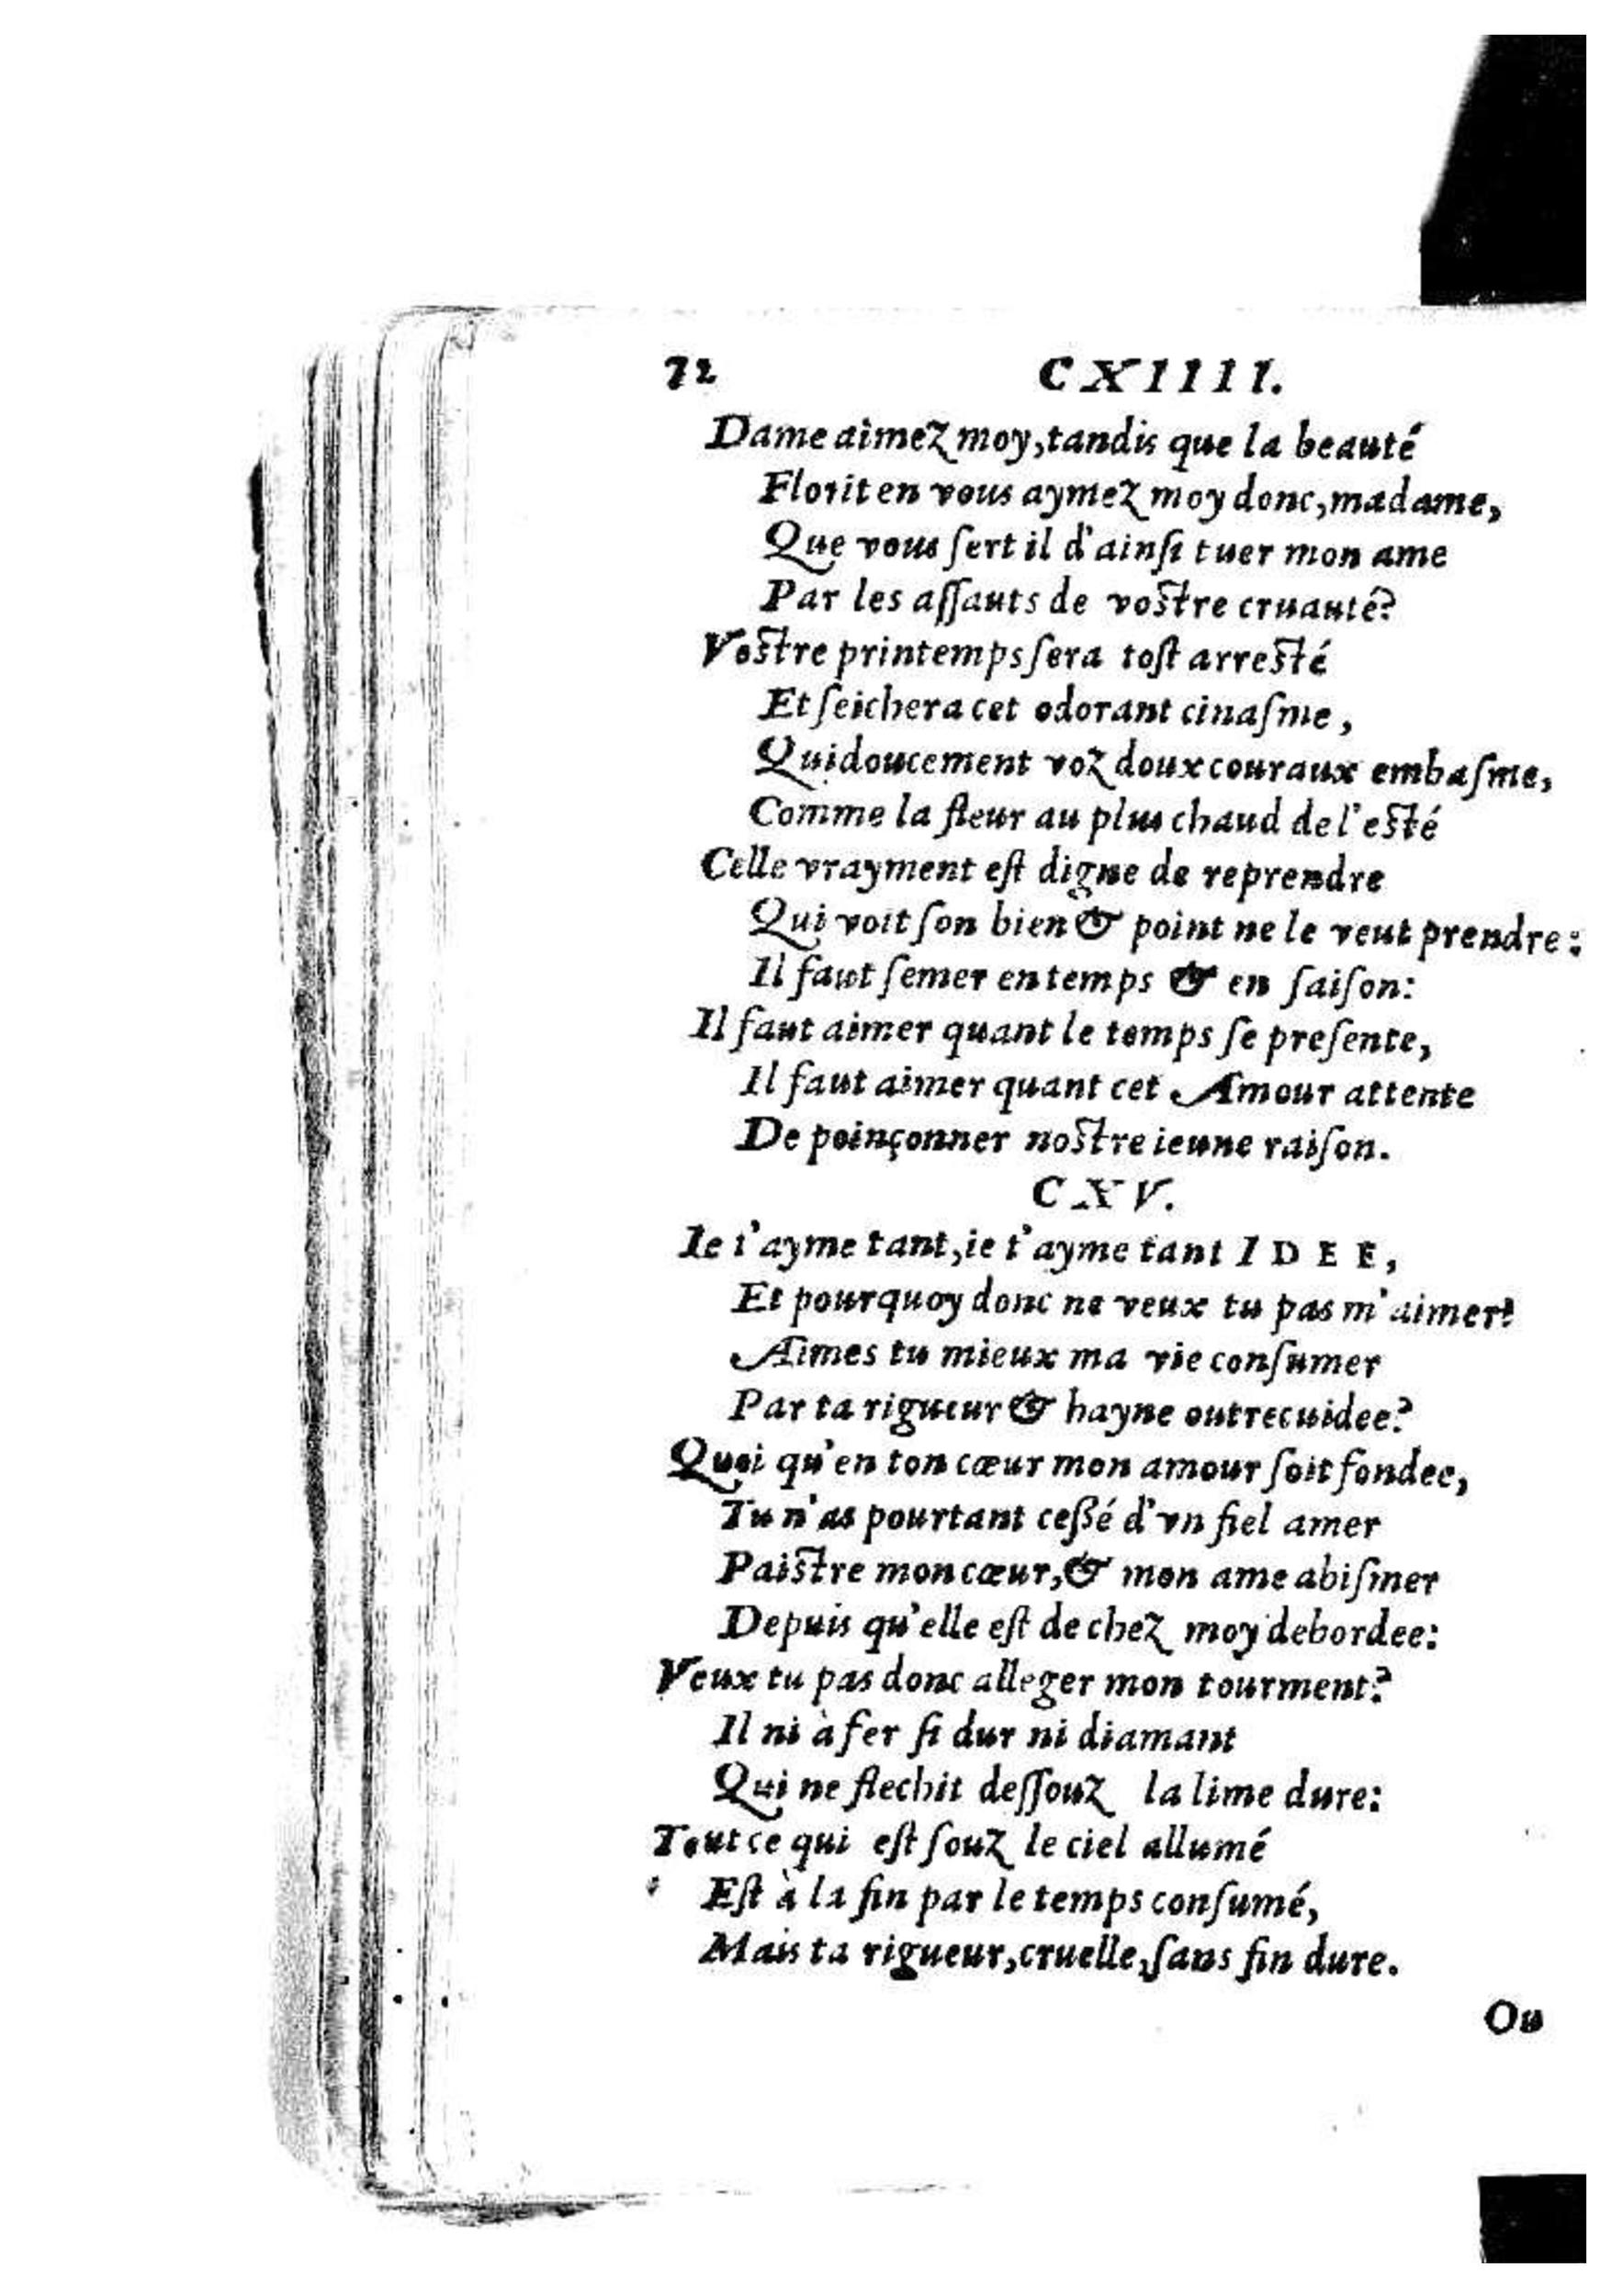 72 CXIIII.
Dame aimez moy, tandis que la beauté
Florit en vous aymez moy donc, madame,
Que vous ſert il d'ainſi tuer mon ame
Par les aſſauts de voſtre cruauté?
Voſtre printemps ſera toſt arreſté
Et ſeichera cet odorant cinaſme,
Qui doucement voz doux couraux embaſme,
Comme la fleur au plus chaud de l'eſté
Celle vrayment eſt digne de reprendre
Qui voit ſon bien & point ne le veut prendre:
Il faut ſemer en temps & en ſaiſon:
Il faut aimer quant le temps ſe preſente,
Il faut aimer quant cet Amour attente
De poinçonner noſtre ieune raiſon.
CXV.
Ie t'ayme tant, ie t'ayme tant IDEE,
Et pourquoy donc ne veux tu pas m'aimer?
Aimes tu mieux ma vie conſumer
Par ta rigueur & hayne outrecuidee?
Quoi qu'en ton cœur mon amour ſoit fondee,
Tu n'as pourtant ceſſé d'vn fiel amer
Paiſtre mon cœur, & mon ame abiſmer
Depuis qu'elle eſt de chez moy debordee:
Veux tu pas donc alleger mon tourment?
Il ni à fer ſi dur ni diamant
Qui ne flechit deſſouz la lime dure:
Tout ce qui eſt ſouz le ciel allumé
Eſt à la fin par le temps conſumé,
Mais ta rigueur, cruelle, ſans fin dure.
Ou